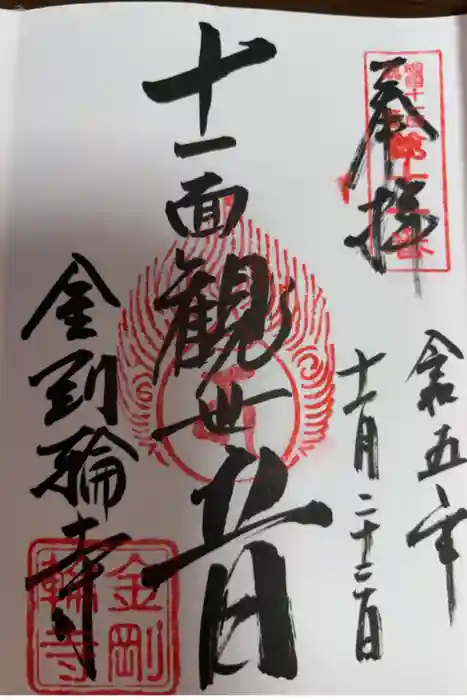 奉拝
令和五年
十一月二十二日
十一面観世音
金剛輪寺
金剛
輪寺